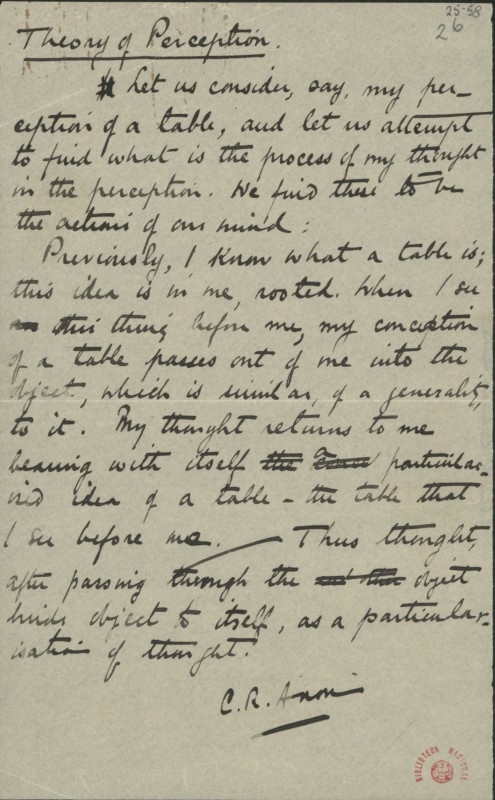 25-58
26
Theory of Perception.
Let us consider, say, my per-
ception of a table, and let us attempt
to find what is the process of my thought
in the perception. We find these to be
the actions of our mind:
Previously, I know what a table is;
this idea is in me, rooted. When I see
this thing before me, my conception
of a table passes out of me into the
object, which is similar, of a generality,
to it. My thought returns to me
bearing with itself the particular-
ised idea of a table - the table that
I see before me. — Thus thought,
after passing through the object
binds object to itself, as a particular-
isation of thought.
C. R. Anon
BIBLIOTECA NACIONAL